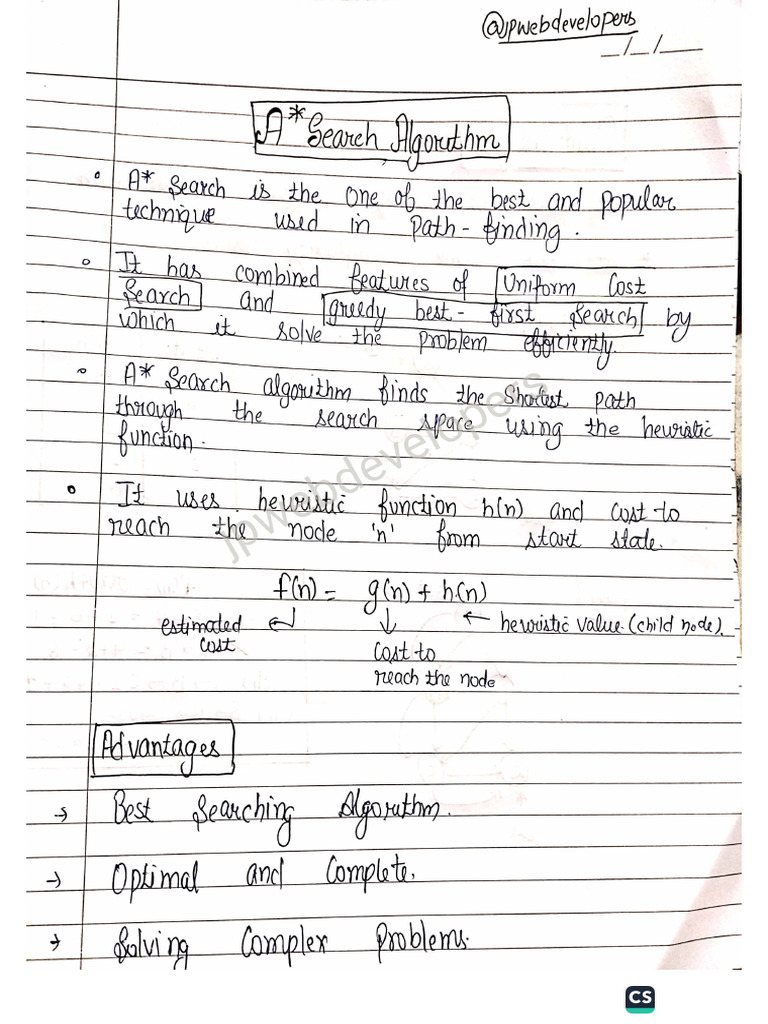 @jpwebdevelopers
_/_/__
A* Search Algorithm
A* Search is the one of the best and popular
technique used in path-finding.
It has combined features of Uniform Cost
Search and greedy best-first Search by
which it solve the problem efficiently.
A* Search algorithm finds the Shortest path
through the search space using the heuristic
function.
It uses heuristic function h(n) and cost to
reach the node 'n' from start state.
f(n) = g(n) + h(n)
estimated cost
← heuristic value (child node).
cost to
reach the node
jpwebdevelopers
Advantages
→ Best Searching Algorithm.
→ Optimal and Complete.
→ Solving Complex Problems.
CS